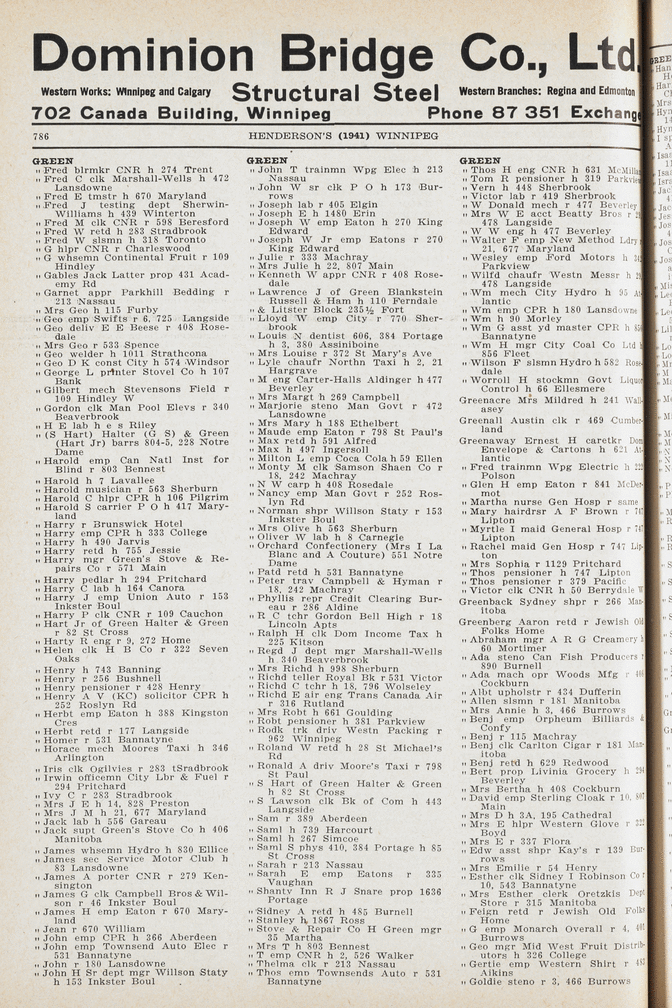 Dominion Bridge Co., Ltd.
Western Works: Winnipeg and Calgary Structural Steel Western Branches: Regina and Edmonton
702 Canada Building, Winnipeg Phone 87 351 Exchange
786 HENDERSON'S (1941) WINNIPEG
GREEN
" Fred blrmkr CNR h 274 Trent
" Fred C clk Marshall-Wells h 472
Lansdowne
" Fred E tmstr h 670 Maryland
" Fred J testing dept Sherwin-
Williams h 439 Winterton
" Fred M clk CNR r 598 Beresford
" Fred W retd h 283 Stradbrook
" Fred W slsmn h 318 Toronto
" G hlpr CNR r Charleswood
" G whsemn Continental Fruit r 109
Hindley
" Gables Jack Latter prop 431 Acad-
emy Rd
" Garnet appr Parkhill Bedding r
213 Nassau
" Mrs Geo h 115 Furby
" Geo emp Swifts r 6, 725 Langside
" Geo deliv E E Beese r 408 Rose-
dale
" Mrs Geo r 533 Spence
" Geo welder h 1011 Strathcona
" Geo D K const City h 574 Windsor
" George L printer Stovel Co h 107
Bank
" Gilbert mech Stevensons Field r
109 Hindley W
" Gordon clk Man Pool Elevs r 340
Beaverbrook
" H E lab h e s Riley
" (S Hart) Halter (G S) & Green
(Hart Jr) barrs 804-5, 228 Notre
Dame
" Harold emp Can Natl Inst for
Blind r 803 Bennest
" Harold h 7 Lavallee
" Harold musician r 563 Sherburn
" Harold C hlpr CPR h 106 Pilgrim
" Harold S carrier P O h 417 Mary-
land
" Harry r Brunswick Hotel
" Harry emp CPR h 333 College
" Harry h 490 Jarvis
" Harry retd h 755 Jessie
" Harry mgr Green's Stove & Re-
pairs Co r 571 Main
" Harry pedlar h 294 Pritchard
" Harry C lab h 164 Canora
" Harry J emp Union Auto r 153
Inkster Boul
" Harry P clk CNR r 109 Cauchon
" Hart Jr of Green Halter & Green
r 82 St Cross
" Harty R eng r 9, 272 Home
" Helen clk H B Co r 322 Seven
Oaks
" Henry h 743 Banning
" Henry r 256 Bushnell
" Henry pensioner r 428 Henry
" Henry A V (KC) solicitor CPR h
252 Roslyn Rd
" Herbt emp Eaton h 388 Kingston
Cres
" Herbt retd r 177 Langside
" Homer r 531 Bannatyne
" Horace mech Moores Taxi h 346
Arlington
" Iris clk Ogilvies r 283 tSradbrook
" Irwin officemn City Lbr & Fuel r
294 Pritchard
" Ivy C r 283 Stradbrook
" Mrs J E h 14, 828 Preston
" Mrs J M h 21, 677 Maryland
" Jack lab h 556 Gareau
" Jack supt Green's Stove Co h 406
Manitoba
" James whsemn Hydro h 830 Ellice
" James sec Service Motor Club h
83 Lansdowne
" James A porter CNR r 279 Ken-
sington
" James G clk Campbell Bros & Wil-
son r 46 Inkster Boul
" James H emp Eaton r 670 Mary-
land
" Jean r 670 William
" John emp CPR h 366 Aberdeen
" John emp Townsend Auto Elec r
531 Bannatyne
" John r 180 Lansdowne
" John H Sr dept mgr Willson Staty
h 153 Inkster Boul
GREEN
" John T trainmn Wpg Elec h 213
Nassau
" John W sr clk P O h 173 Bur-
rows
" Joseph lab r 405 Elgin
" Joseph E h 1480 Erin
" Joseph W emp Eaton h 270 King
Edward
" Joseph W Jr emp Eatons r 270
King Edward
" Julie r 333 Machray
" Mrs Julie h 22, 807 Main
" Kenneth W appr CNR r 408 Rose-
dale
" Lawrence J of Green Blankstein
Russell & Ham h 110 Ferndale
" & Litster Block 235½ Fort
" Lloyd W emp City r 770 Sher-
brook
" Louis N dentist 606, 384 Portage
h 3, 380 Assiniboine
" Mrs Louise r 372 St Mary's Ave
" Lyle chaufr Northn Taxi h 2, 21
Hargrave
" M eng Carter-Halls Aldinger h 477
Beverley
" Mrs Margt h 269 Campbell
" Marjorie steno Man Govt r 472
Lansdowne
" Mrs Mary h 188 Ethelbert
" Maude emp Eaton r 798 St Paul's
" Max retd h 591 Alfred
" Max h 497 Ingersoll
" Milton L emp Coca Cola h 59 Ellen
" Monty M clk Samson Shaen Co r
18, 242 Machray
" N W carp h 408 Rosedale
" Nancy emp Man Govt r 252 Ros-
lyn Rd
" Norman shpr Willson Staty r 153
Inkster Boul
" Mrs Olive h 563 Sherburn
" Oliver W lab h 8 Carnegie
" Orchard Confectionery (Mrs I La
Blanc and A Couture) 551 Notre
Dame
" Patd retd h 531 Bannatyne
" Peter trav Campbell & Hyman r
18, 242 Machray
" Phyllis repr Credit Clearing Bur-
eau r 286 Aldine
" R C tchr Gordon Bell High r 18
Lincoln Apts
" Ralph H clk Dom Income Tax h
225 Kitson
" Regd J dept mgr Marshall-Wells
h 340 Beaverbrook
" Mrs Richd h 998 Sherburn
" Richd teller Royal Bk r 531 Victor
" Richd C tchr h 18, 796 Wolseley
" Richd E air eng Trans Canada Air
r 316 Rutland
" Mrs Robt h 661 Goulding
" Robt pensioner h 381 Parkview
" Rodk trk driv Westn Packing r
962 Winnipeg
" Roland W retd h 28 St Michael's
Rd
" Ronald A driv Moore's Taxi r 798
St Paul
" S Hart of Green Halter & Green
h 82 St Cross
" S Lawson clk Bk of Com h 443
Langside
" Sam r 389 Aberdeen
" Saml h 739 Harcourt
" Saml h 267 Simcoe
" Saml S phys 410, 384 Portage h 85
St Cross
" Sarah r 213 Nassau
" Sarah E emp Eatons r 335
Vaughan
" Shanty Inn R J Snare prop 1636
Portage
" Sidney A retd h 485 Burnell
" Stanley h 1867 Ross
" Stove & Repair Co H Green mgr
35 Martha
" Mrs T h 803 Bennest
" T emp CNR h 2, 526 Walker
" Thelma clk r 213 Nassau
" Thos emp Townsends Auto r 531
Bannatyne
GREEN
" Thos H eng CNR h 631 McMillan
" Tom R pensioner h 319 Parkview
" Vern h 448 Sherbrook
" Victor lab r 419 Sherbrook
" W Donald mech r 477 Beverley
" Mrs W E acct Beatty Bros r
478 Langside
" W W eng h 477 Beverley
" Walter F emp New Method Ldry r
21, 677 Maryland
" Wesley emp Ford Motors h
Parkview
" Wilfd chaufr Westn Messr h
478 Langside
" Wm mech City Hydro h 95 At-
lantic
" Wm emp CPR h 180 Lansdowne
" Wm h 90 Morley
" Wm G asst yd master CPR h
Bannatyne
" Wm H mgr City Coal Co Ltd h
856 Fleet
" Wilson F slsmn Hydro h 582 Rose-
dale
" Worroll H stockmn Govt Liquor
Control h 66 Ellesmere
Greenacre Mrs Mildred h 241 Wall-
asey
Greenall Austin clk r 469 Cumber-
land
Greenaway Ernest H caretkr Dom
Envelope & Cartons h 621 At-
lantic
" Fred trainmn Wpg Electric h
Polson
" Glen H emp Eaton r 841 McDer-
mot
" Martha nurse Gen Hosp r same
" Mary hairdrsr A F Brown r 747
Lipton
" Myrtle I maid General Hosp r 747
Lipton
" Rachel maid Gen Hosp r 747 Lip-
ton
" Mrs Sophia r 1129 Pritchard
" Thos pensioner h 747 Lipton
" Thos pensioner r 379 Pacific
" Victor clk CNR h 50 Berrydale W
Greenback Sydney shpr r 266 Man-
itoba
Greenberg Aaron retd r Jewish Old
Folks Home
" Abraham mgr A R G Creamery h
60 Mortimer
" Ada steno Can Fish Producers r
890 Burnell
" Ada mach opr Woods Mfg r
Cockburn
" Albt upholstr r 434 Dufferin
" Allen slsmn r 181 Manitoba
" Mrs Annie h 3, 466 Burrows
" Benj emp Orpheum Billiards &
Confy
" Benj r 115 Machray
" Benj clk Carlton Cigar r 181 Man-
itoba
" Benj retd h 629 Redwood
" Bert prop Livinia Grocery h 294
Beverley
" Mrs Bertha h 408 Cockburn
" David emp Sterling Cloak r 10, 807
Main
" Mrs D h 3A, 195 Cathedral
" Mrs E hlpr Western Glove r
Boyd
" Mrs E r 337 Flora
" Edw asst shpr Kay's r 139 Bur-
rows
" Mrs Emilie r 54 Henry
" Esther clk Sidney I Robinson Co r
10, 543 Bannatyne
" Mrs Esther clerk Oretzkis Dept
Store r 315 Manitoba
" Feign retd r Jewish Old Folks
Home
" G emp Monarch Overall r 4,
Burrows
" Geo mgr Mid West Fruit Distrib-
utors h 326 College
" Gertie emp Western Shirt r
Aikins
" Goldie steno r 3, 466 Burrows